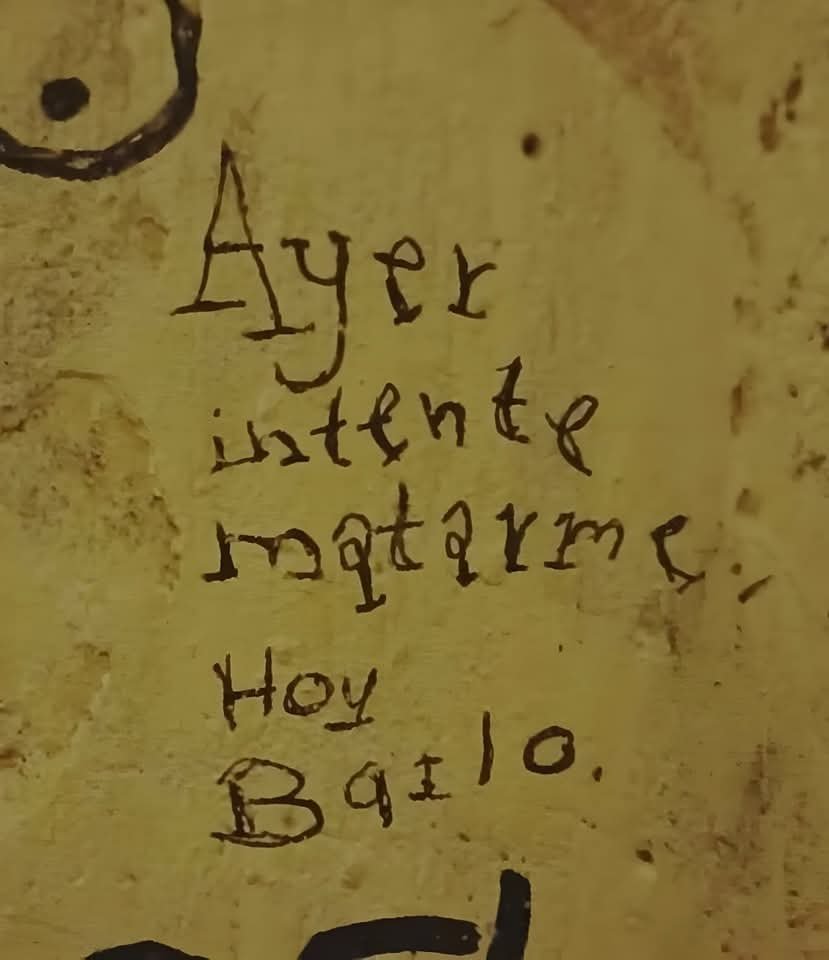 Ayer
intente
matarme.
Hoy
Bailo.